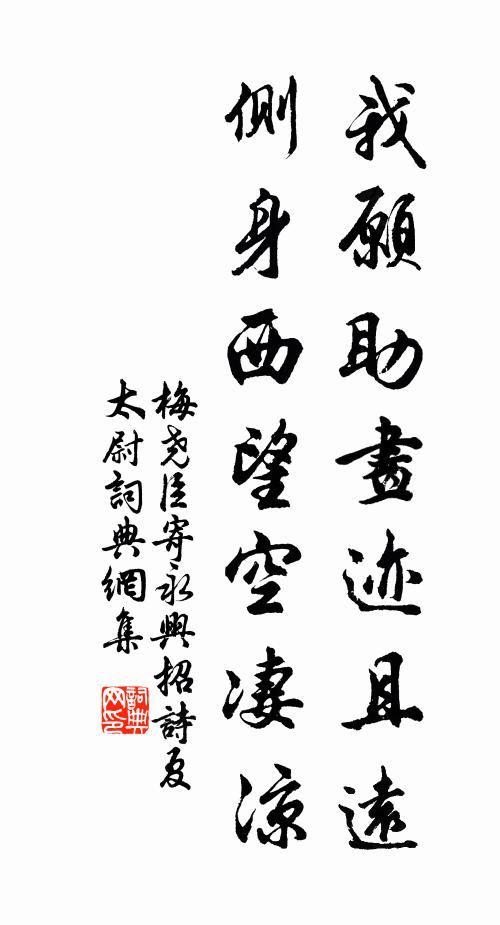 我願助畫迹且遠
側身西望空凄涼
梅堯臣寄永興招詩夏
太尉詞典網集
詞典网印